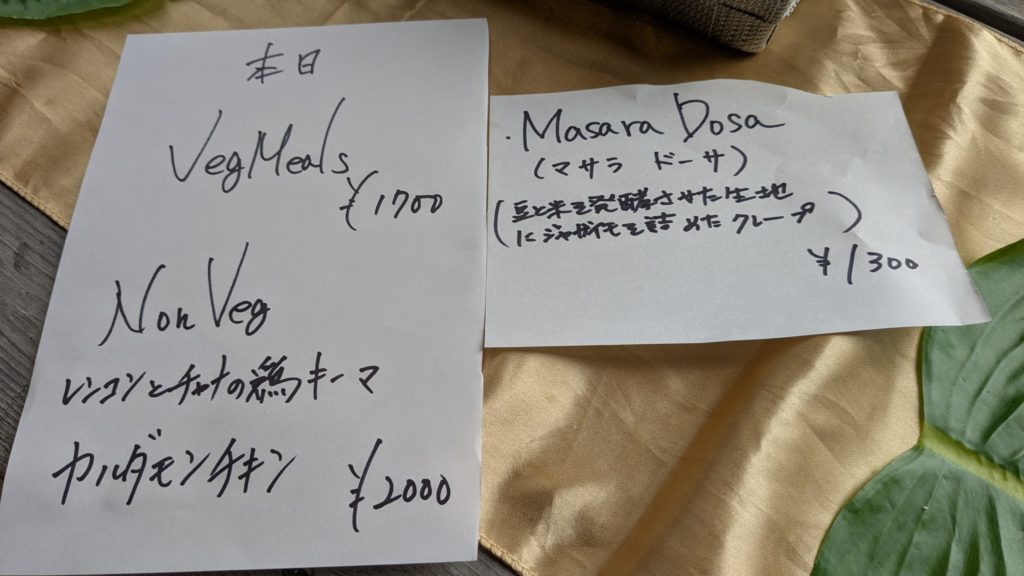 本日
Veg Meals
¥1700
Non Veg
レンコンとチャナの鶏キーマ
カルダモンチキン
¥2000
・Masara Dosa
(マサラ ドーサ)
(豆と米を発酵させた生地
にジャガイモを詰めたクレープ)
¥1300